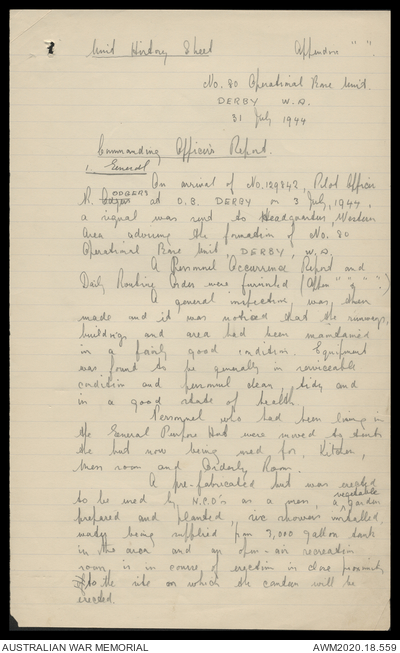 Unit History Sheet Appendix " ".
No. 80 Operational Base Unit.
DERBY W.A.
31 July 1944
Commanding Officer's Report.
1. General
On arrival of No. 129842, Pilot Officer
R. ODGERS at O.B. DERBY on 3 July, 1944,
a signal was sent to Headquarters, Western
Area advising the formation of No. 80
Operational Base Unit, DERBY, W.A.
A Personnel Occurrence Report and
Daily Routine Order were furnished (Appen " " & " ".)
A general inspection was then
made and it was noticed that the runways,
buildings and area had been maintained
in a fairly good condition. Equipment
was found to be generally in serviceable
condition and personnel clean, tidy and
in a good state of health.
Personnel who had been living in
the General Purpose Hut were moved to tents
the hut now being used for, Kitchen,
Mess room and Orderly Room.
A pre-fabricated hut was erected
to be used by N.C.O's as a mess, a vegetable garden
prepared and planted, six showers installed,
water being supplied from 3,000 gallon tank
in the area and an open-air recreation
room is in course of erection in close proximity
to the site on which the canteen will be
erected.
AUSTRALIAN WAR MEMORIAL AWM2020.18.559